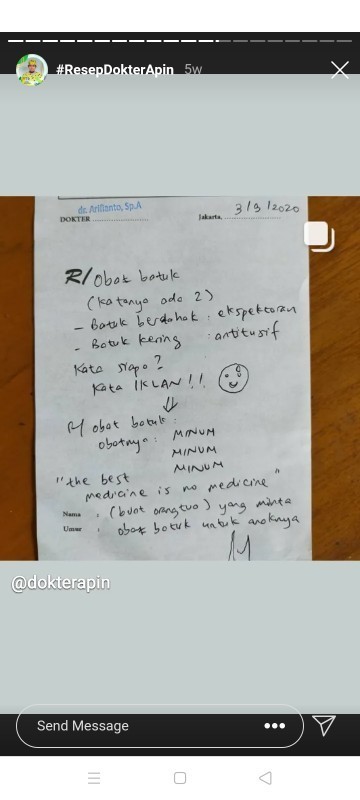 #ResepDokterApin 5w
dr. Arifianto, Sp.A
DOKTER
Jakarta, 3/3/2020
R/ Obat batuk
(katanya ada 2)
- Batuk berdahak : ekspektoran
- Batuk kering : antitusif
Kata siapa?
Kata IKLAN!!
R/ obat batuk :
obatnya : MINUM
MINUM
MINUM
"the best
medicine is no medicine"
Nama : (buat orangtua) yang minta
Umur : obat batuk untuk anaknya
@dokterapin
Send Message